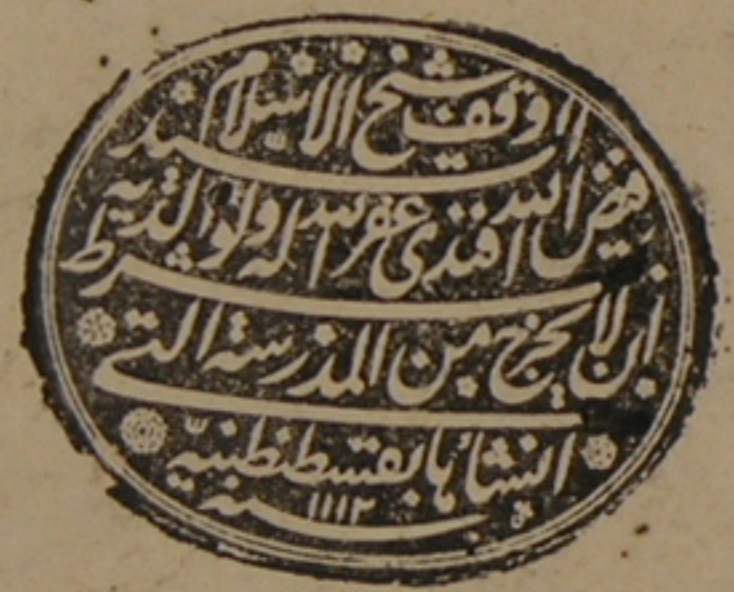 اوقف شيخ الاسلام السيد
فيض الله افندى غفر الله له ولوالديه
بشرط ان لا يخرج من المدرسة التى
انشأها بقسطنطنية
سنة ١١١٢